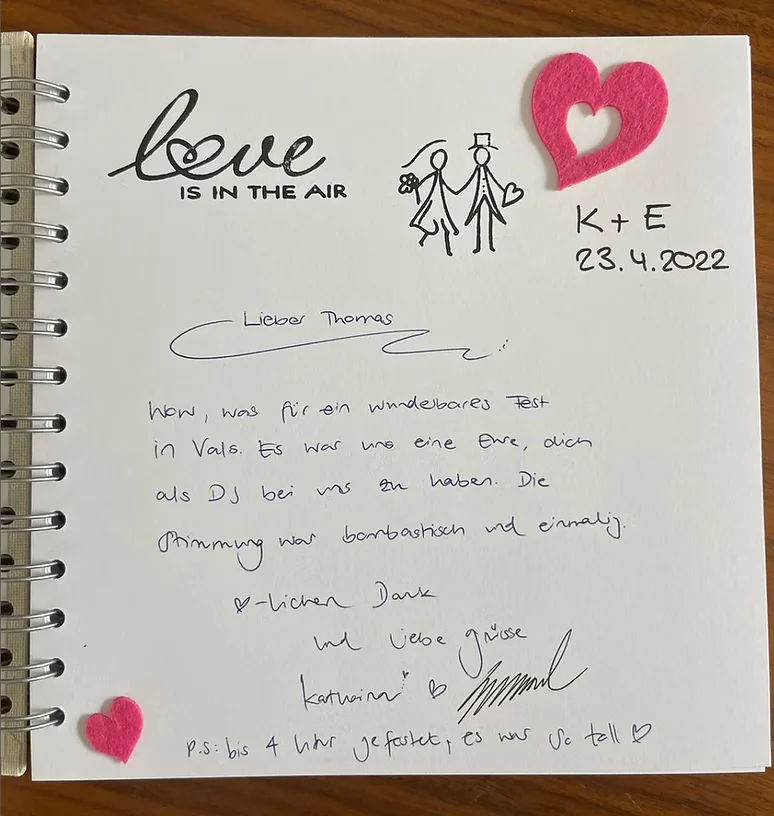 love
IS IN THE AIR
K + E
23.4.2022
Lieber Thomas
Wow, was für ein wundebares Fest
in Vals. Es war uns eine Ehre, dich
als DJ bei uns zu haben. Die
Stimmung war bombastisch und einmalig.
♡-lichen Dank
und liebe grüsse
Katharina ♡
P.S: bis 4 Uhr gefestet, es war so toll ♡